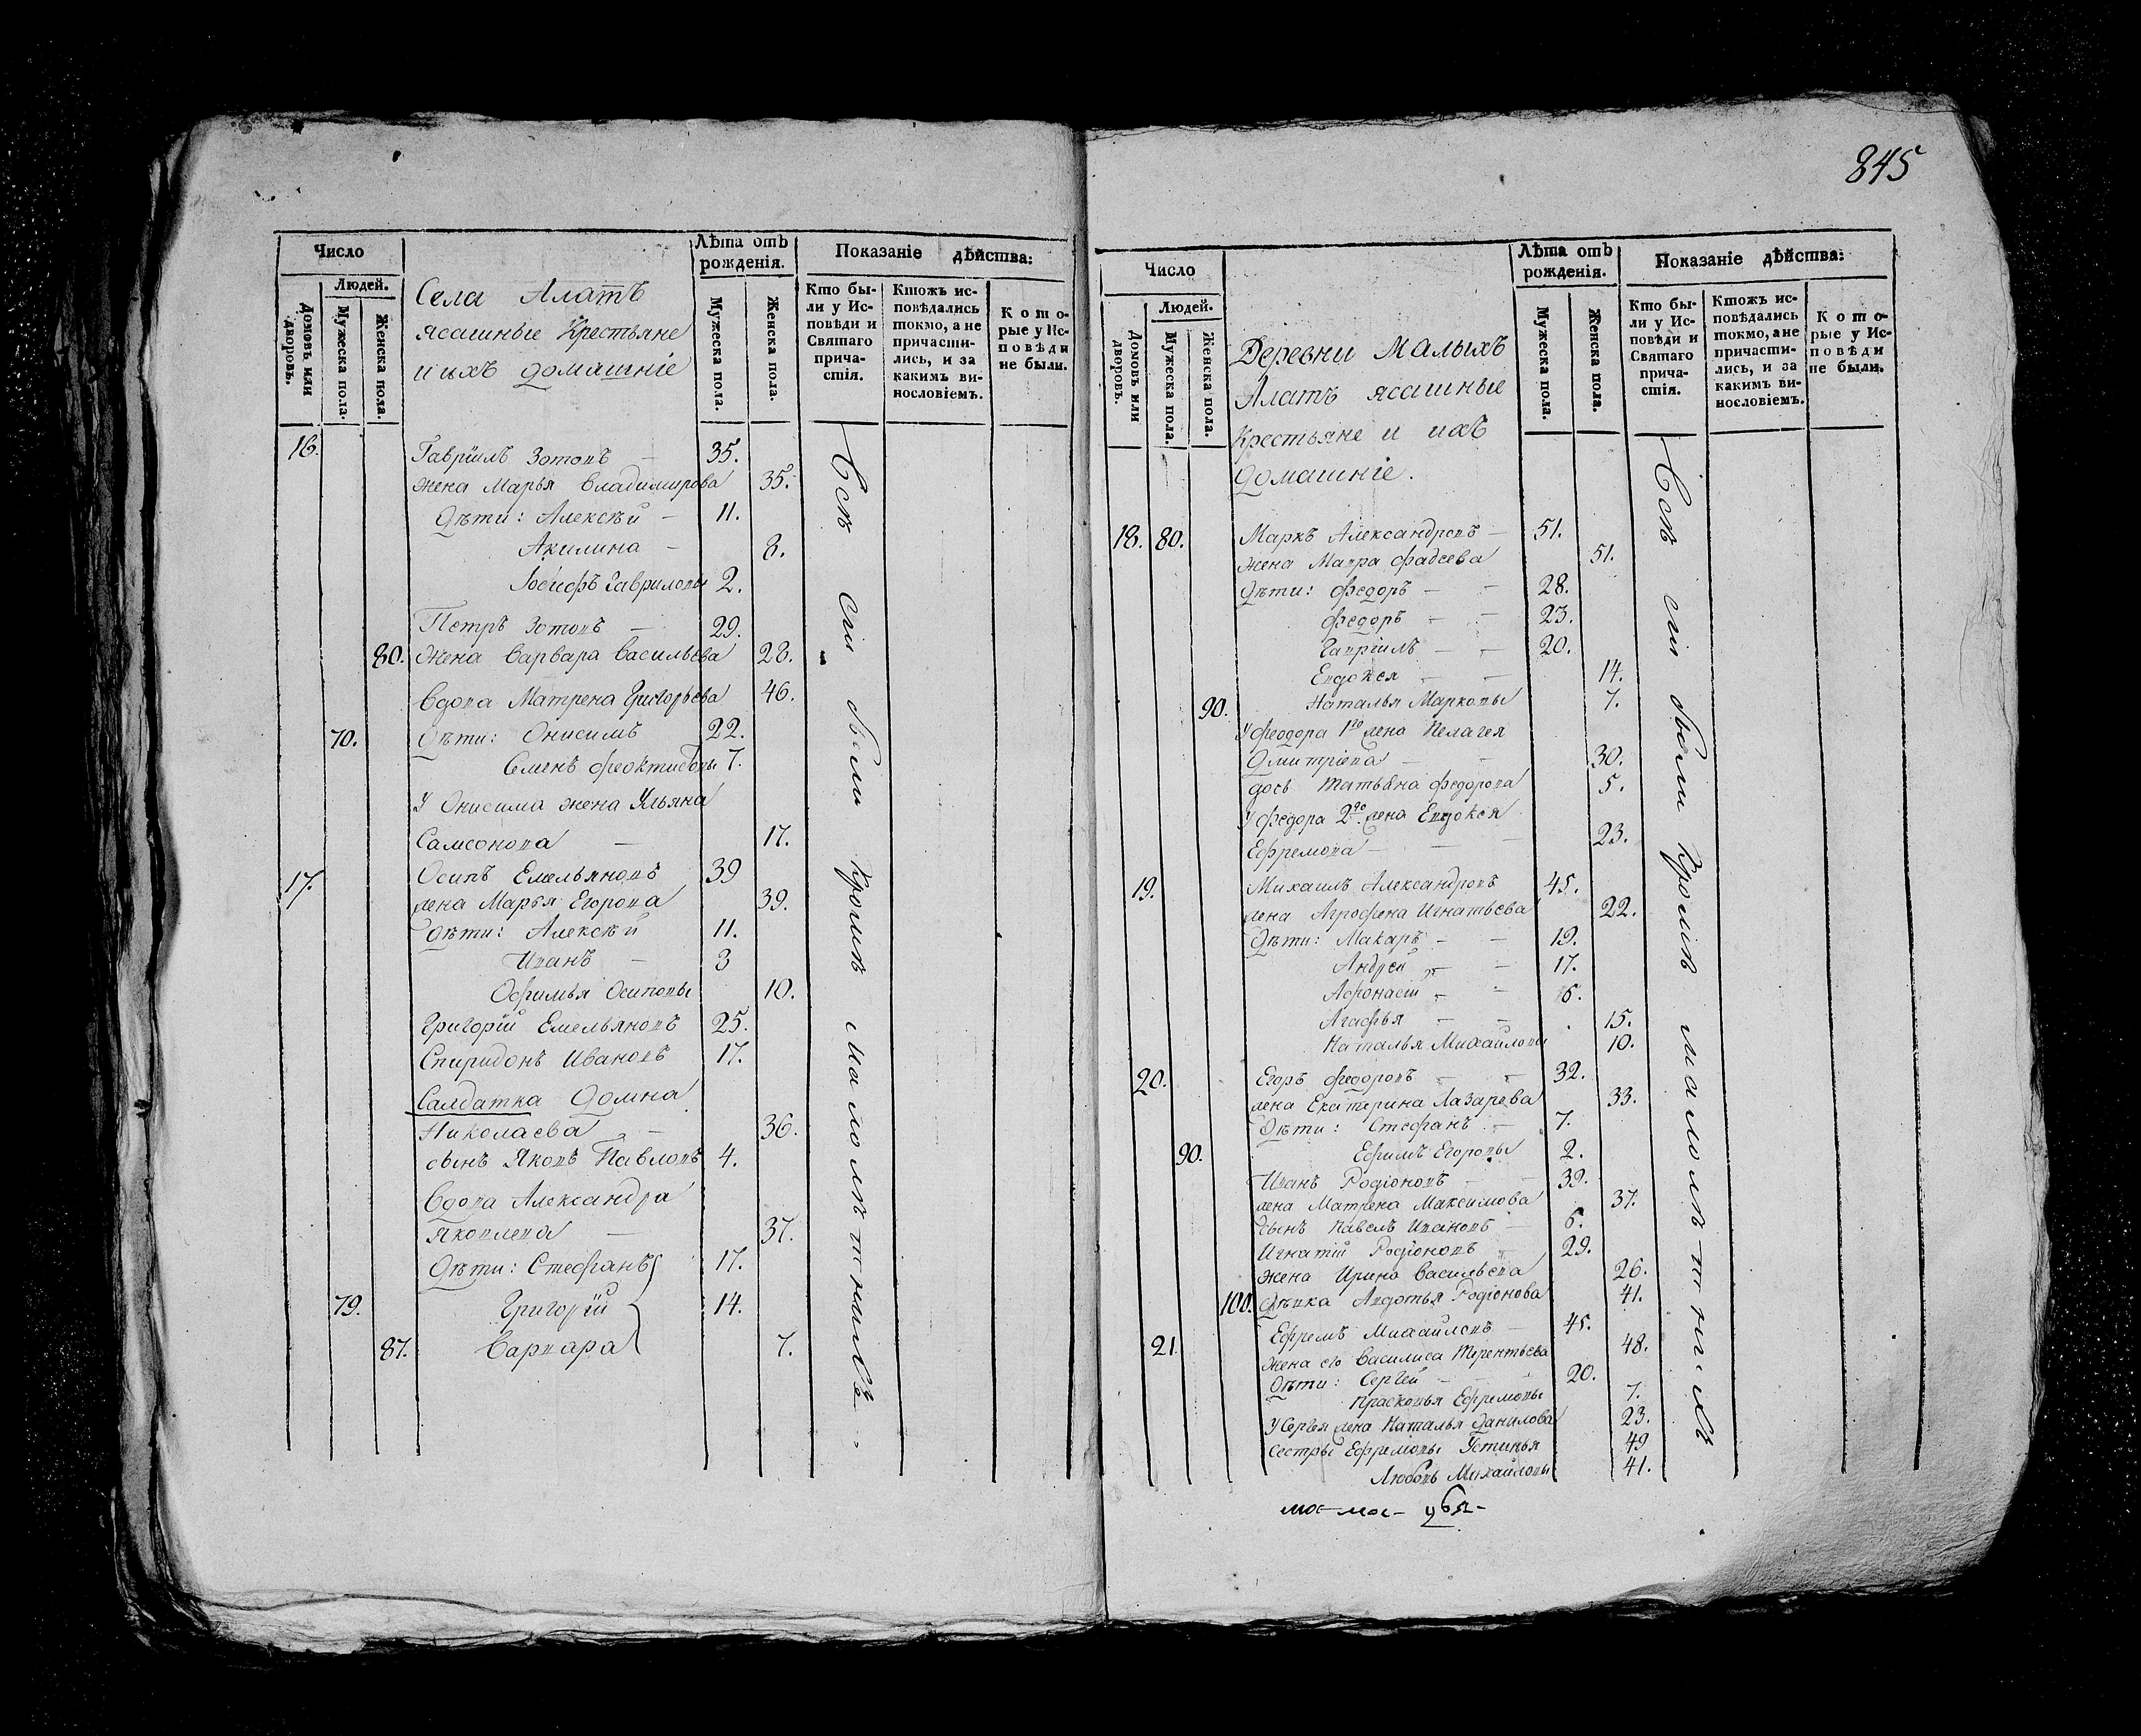 845
Число
Лѣта отъ рожденія.
Показаніе дѣйства:
Людей.
Домовъ или дворовъ.
Мужеска пола.
Женска пола.
Мужеска пола.
Женска пола.
Кто бы-
ли у Ис-
повѣди и
Святаго
прича-
стія.
Ктожъ ис-
повѣдались
токмо, а не
причасти-
лись, и за
какимъ ви-
нословіемъ.
Кото-
рые у Ис-
повѣди
не были.
Села Алатъ
ясашные Крестьяне
и ихъ домашніе
16. Гавріилъ Зотовъ — 35.
жена Марья Владимирова 35.
Дѣти: Алексѣй — 11.
Акилина — 8.
Іосифъ Гавриловы 2.
Петръ Зотовъ — 29.
80. Жена Варвара Васильева 28.
Вдова Матрена Григорьева 46.
70. Дѣти: Онисимъ 22.
Семенъ Феоктистовы 7.
У Онисима жена Ульяна
Самсонова — 17.
17. Осипъ Емельяновъ 39
жена Марья Егорова 39.
Дѣти: Алексѣй 11.
Иванъ — 3
Офимья Осиповы 10.
Григорій Емельяновъ 25.
Спиридонъ Ивановъ 17.
Салдатка Домна
Николаева — 36.
сынъ Яковъ Павловъ 4.
Вдова Александра
Яковлева — 37.
Дѣти: Стефанъ 17.
79. Григорій 14.
87. Варвара 7.
Всѣ сіи были кромѣ малолѣтнихъ
Число
Лѣта отъ рожденія.
Показаніе дѣйства:
Людей.
Домовъ или дворовъ.
Мужеска пола.
Женска пола.
Мужеска пола.
Женска пола.
Кто бы-
ли у Ис-
повѣди и
Святаго
прича-
стія.
Ктожъ ис-
повѣдались
токмо, а не
причасти-
лись, и за
какимъ ви-
нословіемъ.
Кото-
рые у Ис-
повѣди
не были.
Деревни Малыхъ
Алатъ ясашные
Крестьяне и ихъ
домашніе.
18. 80. Маркъ Александровъ — 51.
жена Мавра Фадеева 51.
Дѣти: Федоръ — — 28.
Федоръ — — 23.
Гавріилъ — — 20.
Евдокея — — 14.
90. Наталья Марковы 7.
У Феодора 1го жена Пелагея
Дмитріева — — 30.
дочь Татьяна Федорова 5.
У Федора 2го жена Евдокея
Ефремова — — — 23.
19. Михаилъ Александровъ 45.
жена Агрофена Игнатьева 22.
Дѣти: Макаръ — — 19.
Андрей — — 17.
Афонасій — — 6.
Агафья — — 15.
Наталья Михайловы 10.
20. Егоръ Федоровъ — — 32.
жена Екатерина Лазарева 33.
Дѣти: Стефанъ — 7.
90. Ефимъ Егоровы 2.
Иванъ Родіоновъ — — 39.
жена Матрена Максимова 37.
сынъ Павелъ Ивановъ — 6.
Игнатій Родіоновъ — 29.
жена Ирина Васильева 26.
100. Дѣвка Авдотья Родіонова 41.
21. Ефремъ Михайловъ — 45.
жена его Василиса Терентьева 48.
Дѣти: Сергей — — — 20.
Прасковья Ефремовы 7.
У Сергея жена Наталья Данилова 23.
Сестры Ефремовы Устинья 49
Любовь Михайловы 41.
Всѣ сіи были кромѣ малолѣтнихъ